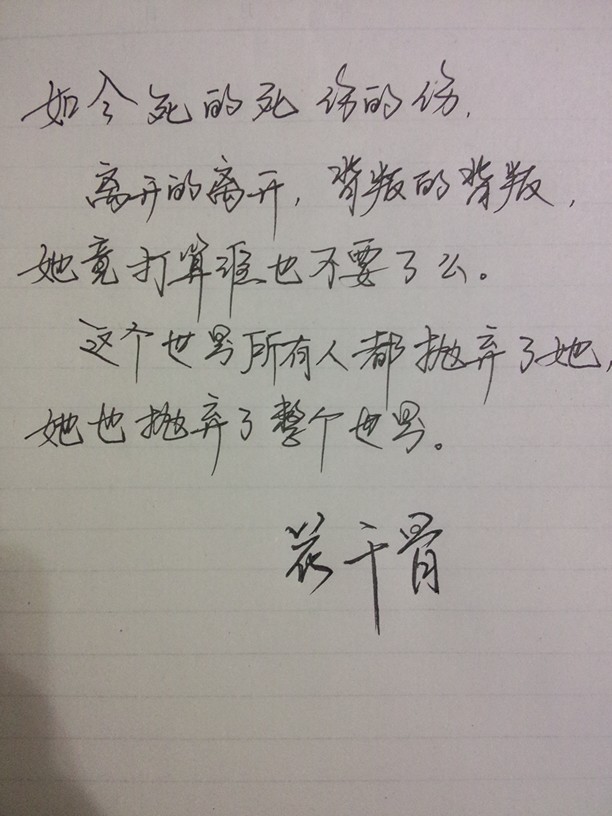 如今死的死 伤的伤,
离开的离开, 背叛的背叛,
她竟打算谁也不要了么。
这个世界所有人都抛弃了她,
她也抛弃了整个世界。
花千骨